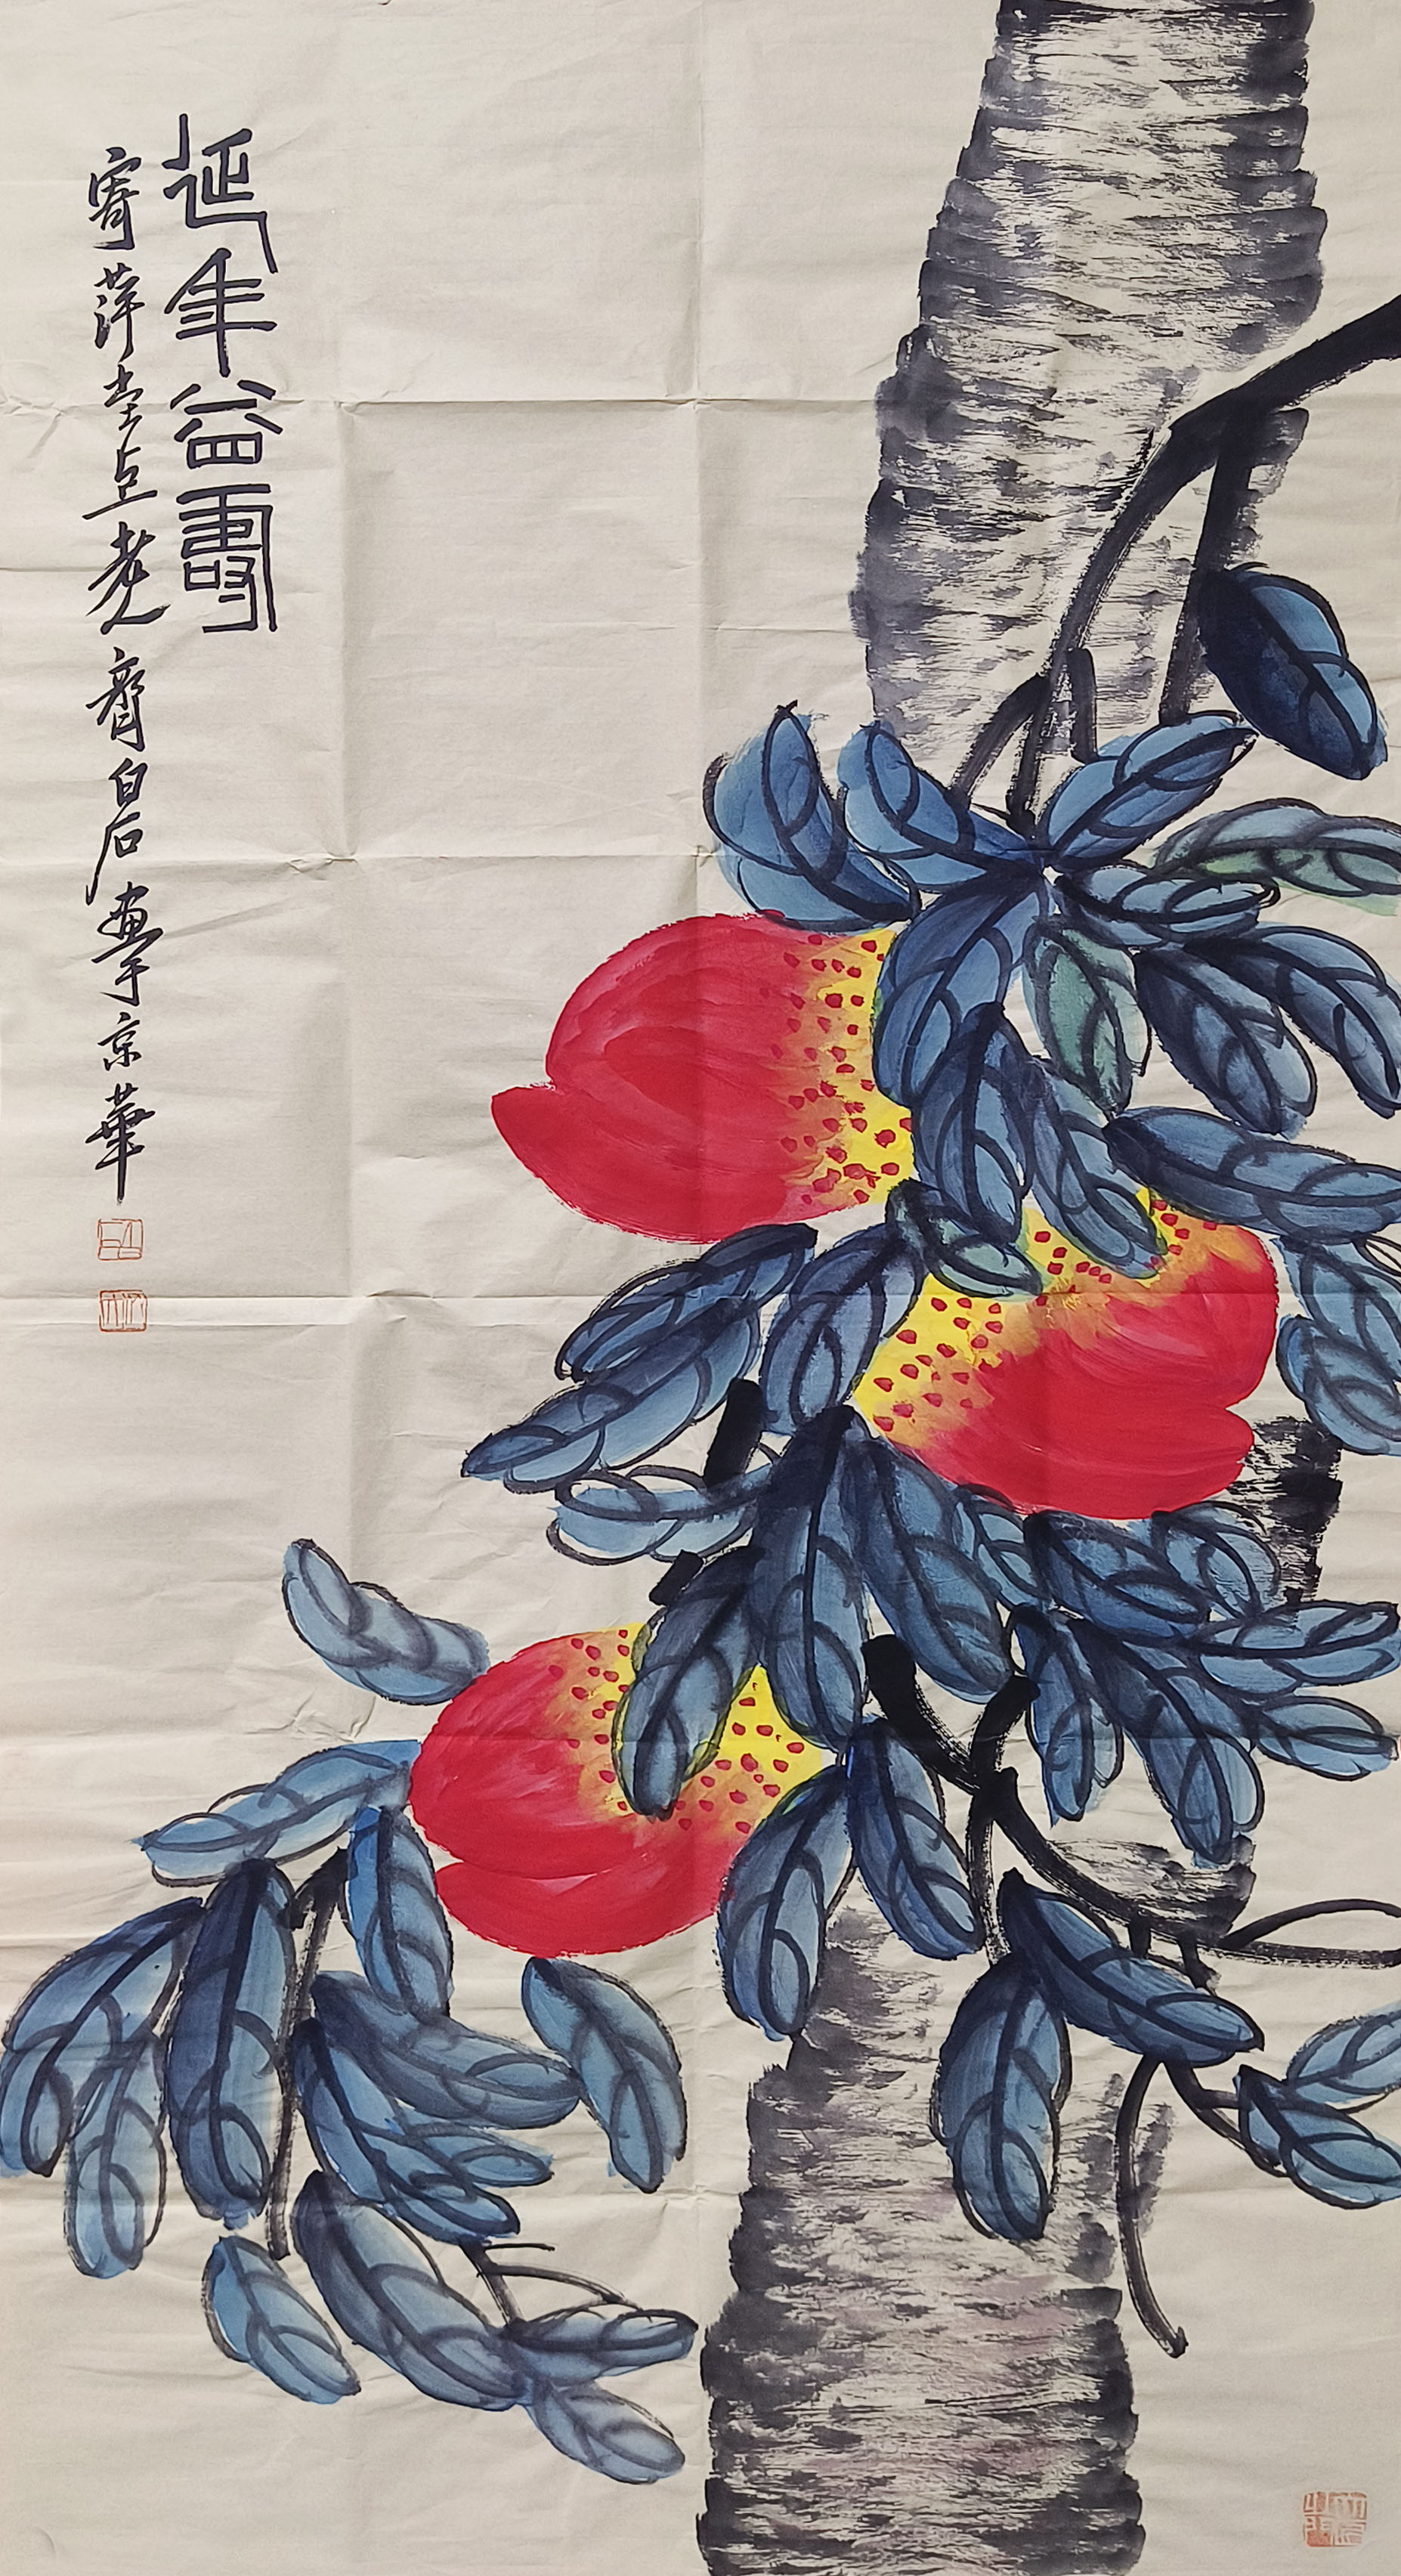 延年益壽
寄萍堂上老人齊白石畫于京華